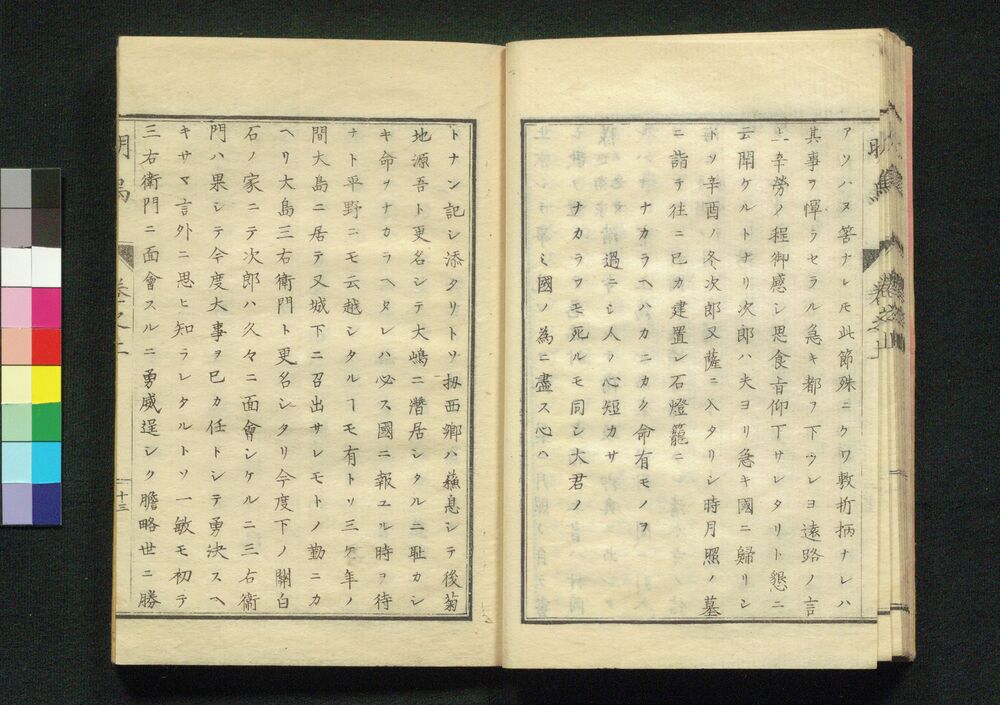 アツハヌ筈ナレモ此節殊ニクワ敷折柄ナレハ
其事ヲ憚ラセラル急キ都ヲ下ウレヨ遠路ノ言
上辛勞ノ程御感シ思食旨仰下サレタリト懇ニ
云聞ケルトナリ次郎ハ夫ヨリ急キ國ニ歸リシ
トソ辛酉ノ冬次郎又薩ニ入タリシ時月照ノ墓
ニ詣テ往ニ己カ建置シ石燈籠ニ
ナカラヘハカニカク命有モノヲ
過ニシ人ノ心短カサ
ナカラフモ死ルモ同シ大君ノ
國ノ為ニ盡ス心ヘ
トナン記シ添タリトソ扨西郷ハ蘓息シテ後菊
地源吾ト更名シテ大嶋ニ潜居シタルニ耻カシ
キ命ヲナカラヘタレハ必ス國ニ報ユル時ヲ待
ナト平野ニモ云越シタルヿモ有トソ三ケ年ノ
間大島ニ居テ又城下ニ召出サレモトノ勤ニカ
ヘリ大島三右衛門ト更名シタリ今度下ノ關白
石ノ家ニテ次郎ハ久々ニ面會シケルニ三右衛
門ハ果シテ今度大事ヲ己カ任トシテ勇決スヘ
キサマ言外ニ思ヒ知ラレタルトソ一敏モ初テ
三右衛門ニ面會スルニ勇威逞シク膽略世ニ勝
卷之上
十三